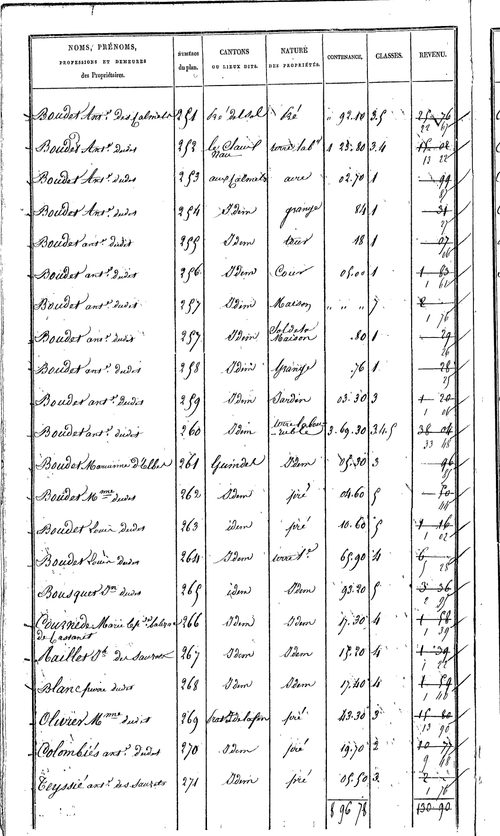 NOMS, PRÉNOMS,
PROFESSIONS ET DEMEURES
des Propriétaires.
NUMÉROS
du plan.
CANTONS
OU LIEUX DITS.
NATURE
DES PROPRIÉTÉS.
CONTENANCE.
CLASSES.
REVENU.
Boudet Ant. des Calmets 251 Pré del sol Pré " 92.10 3.5 25 76
22 67
Boudet Ant. dudit 252 terre lab. 1 23.80 3.4 15 02
13 22
Boudet Ant. dudit 253 aux Calmets aire 02.70 1 99
87
Boudet Ant. dudit 254 Idem grange 84 1 31
27
Boudet ant. dudit 255 Idem 18 1 07
06
Boudet ant. dudit 256 Idem Cour 05.00 1 1 83
1 61
Boudet ant. dudit 257 Idem Maison " " " 7 2
1 76
Boudet ant. dudit 257 Idem Sol de la Maison .80 1 29
26
Boudet ant. dudit 258 Idem Grange .76 1 28
25
Boudet ant. dudit 259 Idem Jardin 03.30 3 1 20
1 06
Boudet ant. dudit 260 Idem terre labourable 3.69.30 3.4.5 38 04
33 48
Boudet 261 Guindet Idem 05.30 3 96
85
Boudet Mme dudit 262 Idem pré 04.60 5 50
44
Boudet Louis dudit 263 idem pré 10.60 5 1 16
1 02
Boudet Louis dudit 264 Idem terre l. 65.90 4 6
5 28
Bousquet dudit 265 idem Idem 93.20 5 3 36
2 95
Marie 266 Idem Idem 17.30 4 1 58
de 1 39
Maillet des 267 Idem Idem 15.20 4 1 39
1 22
Blanc pierre dudit 268 Idem Idem 17.40 4 1 59
1 40
Olivier Mme dudit 269 pré 43.30 3 15 80
13 90
Colombiés ant. dudit 270 Idem pré 19.70 2 10 77
9 48
Teyssié ant. des 271 Idem pré 05.50 3 2
1 76
8 96 78 130 90